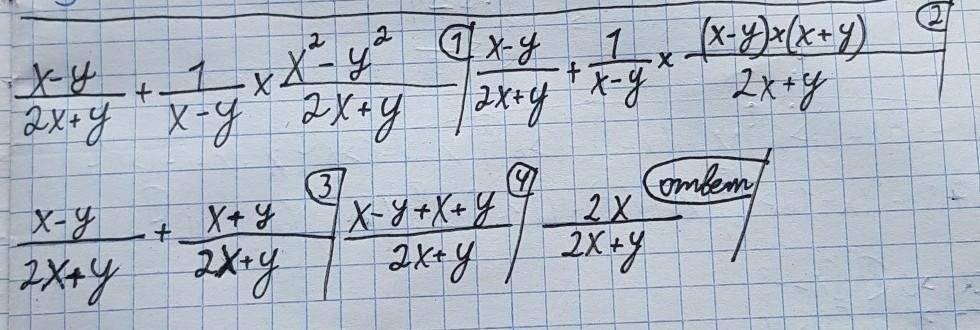 (x-y)/(2x+y) + 1/(x-y) × (x²-y²)/(2x+y) ① (x-y)/(2x+y) + 1/(x-y) × ((x-y)×(x+y))/(2x+y) ②
(x-y)/(2x+y) + (x+y)/(2x+y) ③ (x-y+x+y)/(2x+y) ④ 2x/(2x+y) ответ